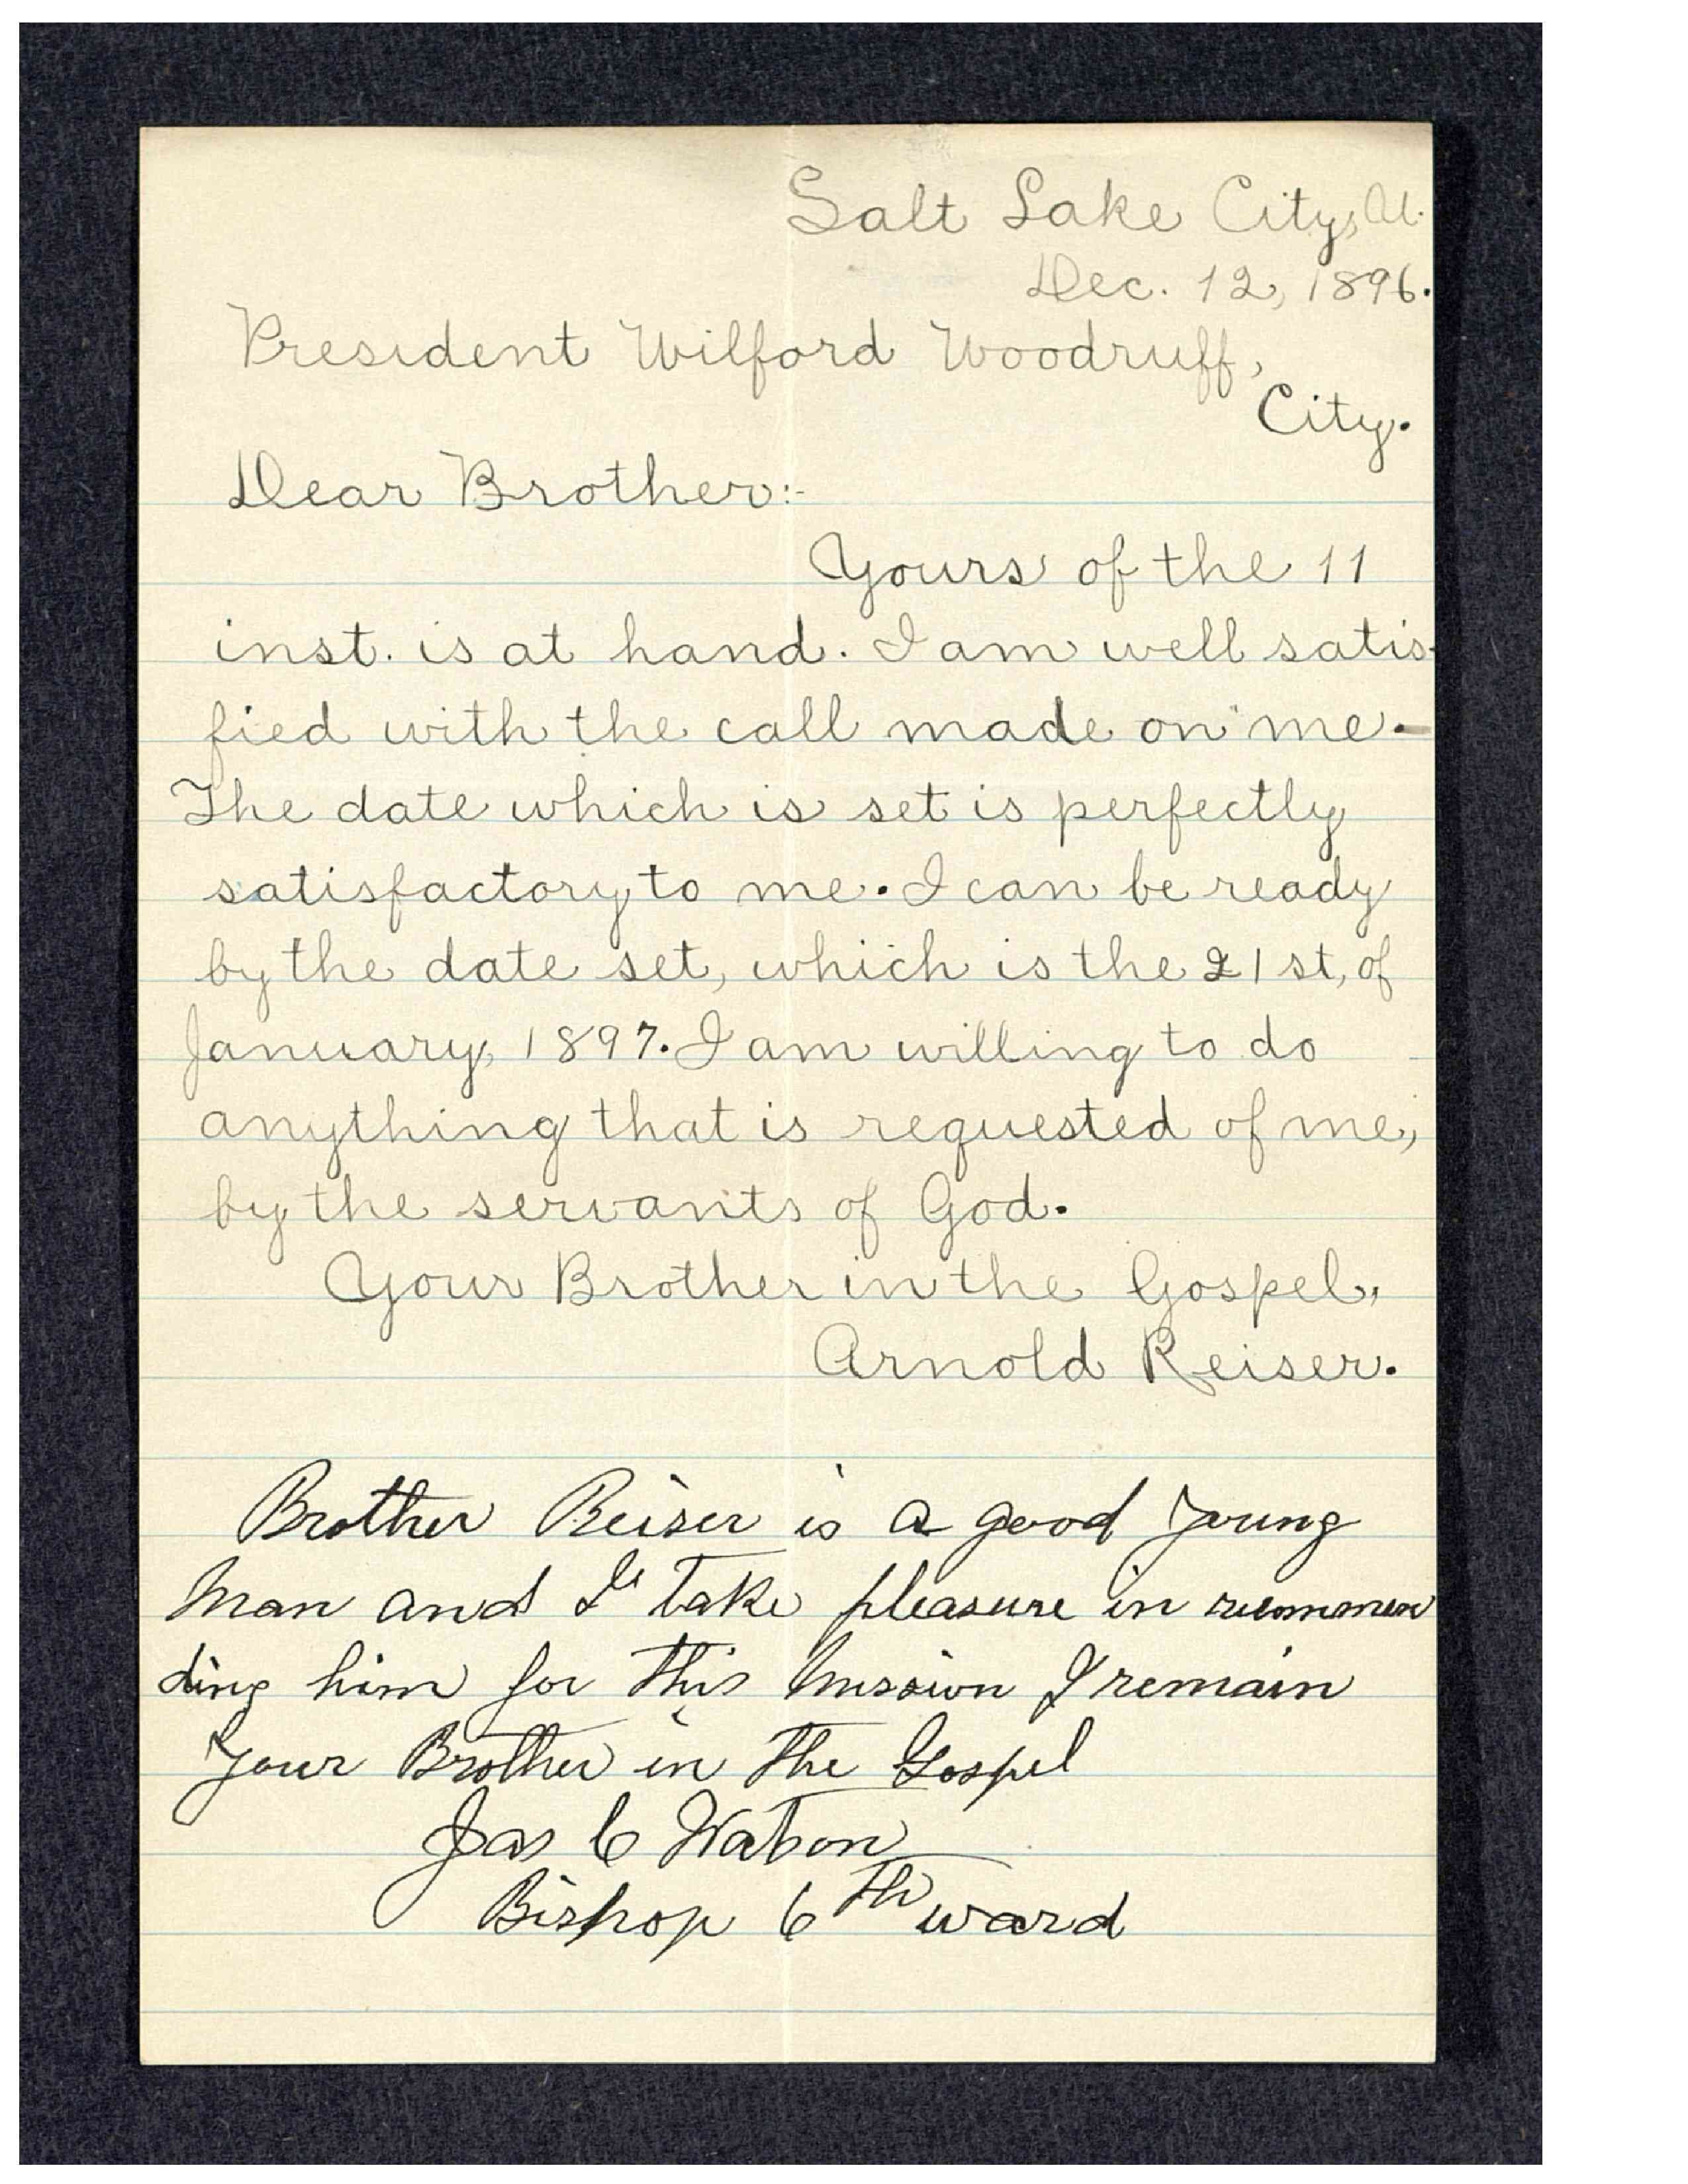 Salt Lake City, U.
Dec. 12, 1896.
President Wilford Woodruff,
City.
Dear Brother:-
Yours of the 11
inst. is at hand. I am well satis-
fied with the call made on me.
The date which is set is perfectly
satisfactory to me. I can be ready
by the date set, which is the 21st, of
January, 1897. I am willing to do
anything that is requested of me,
by the servants of God.
Your Brother in the Gospel,
Arnold Reiser.
Brother Reiser is a good young
man and I take pleasure in recommen
ding him for this mission I remain
your Brother in the Gospel
Jas C Watson
Bishop 6th ward